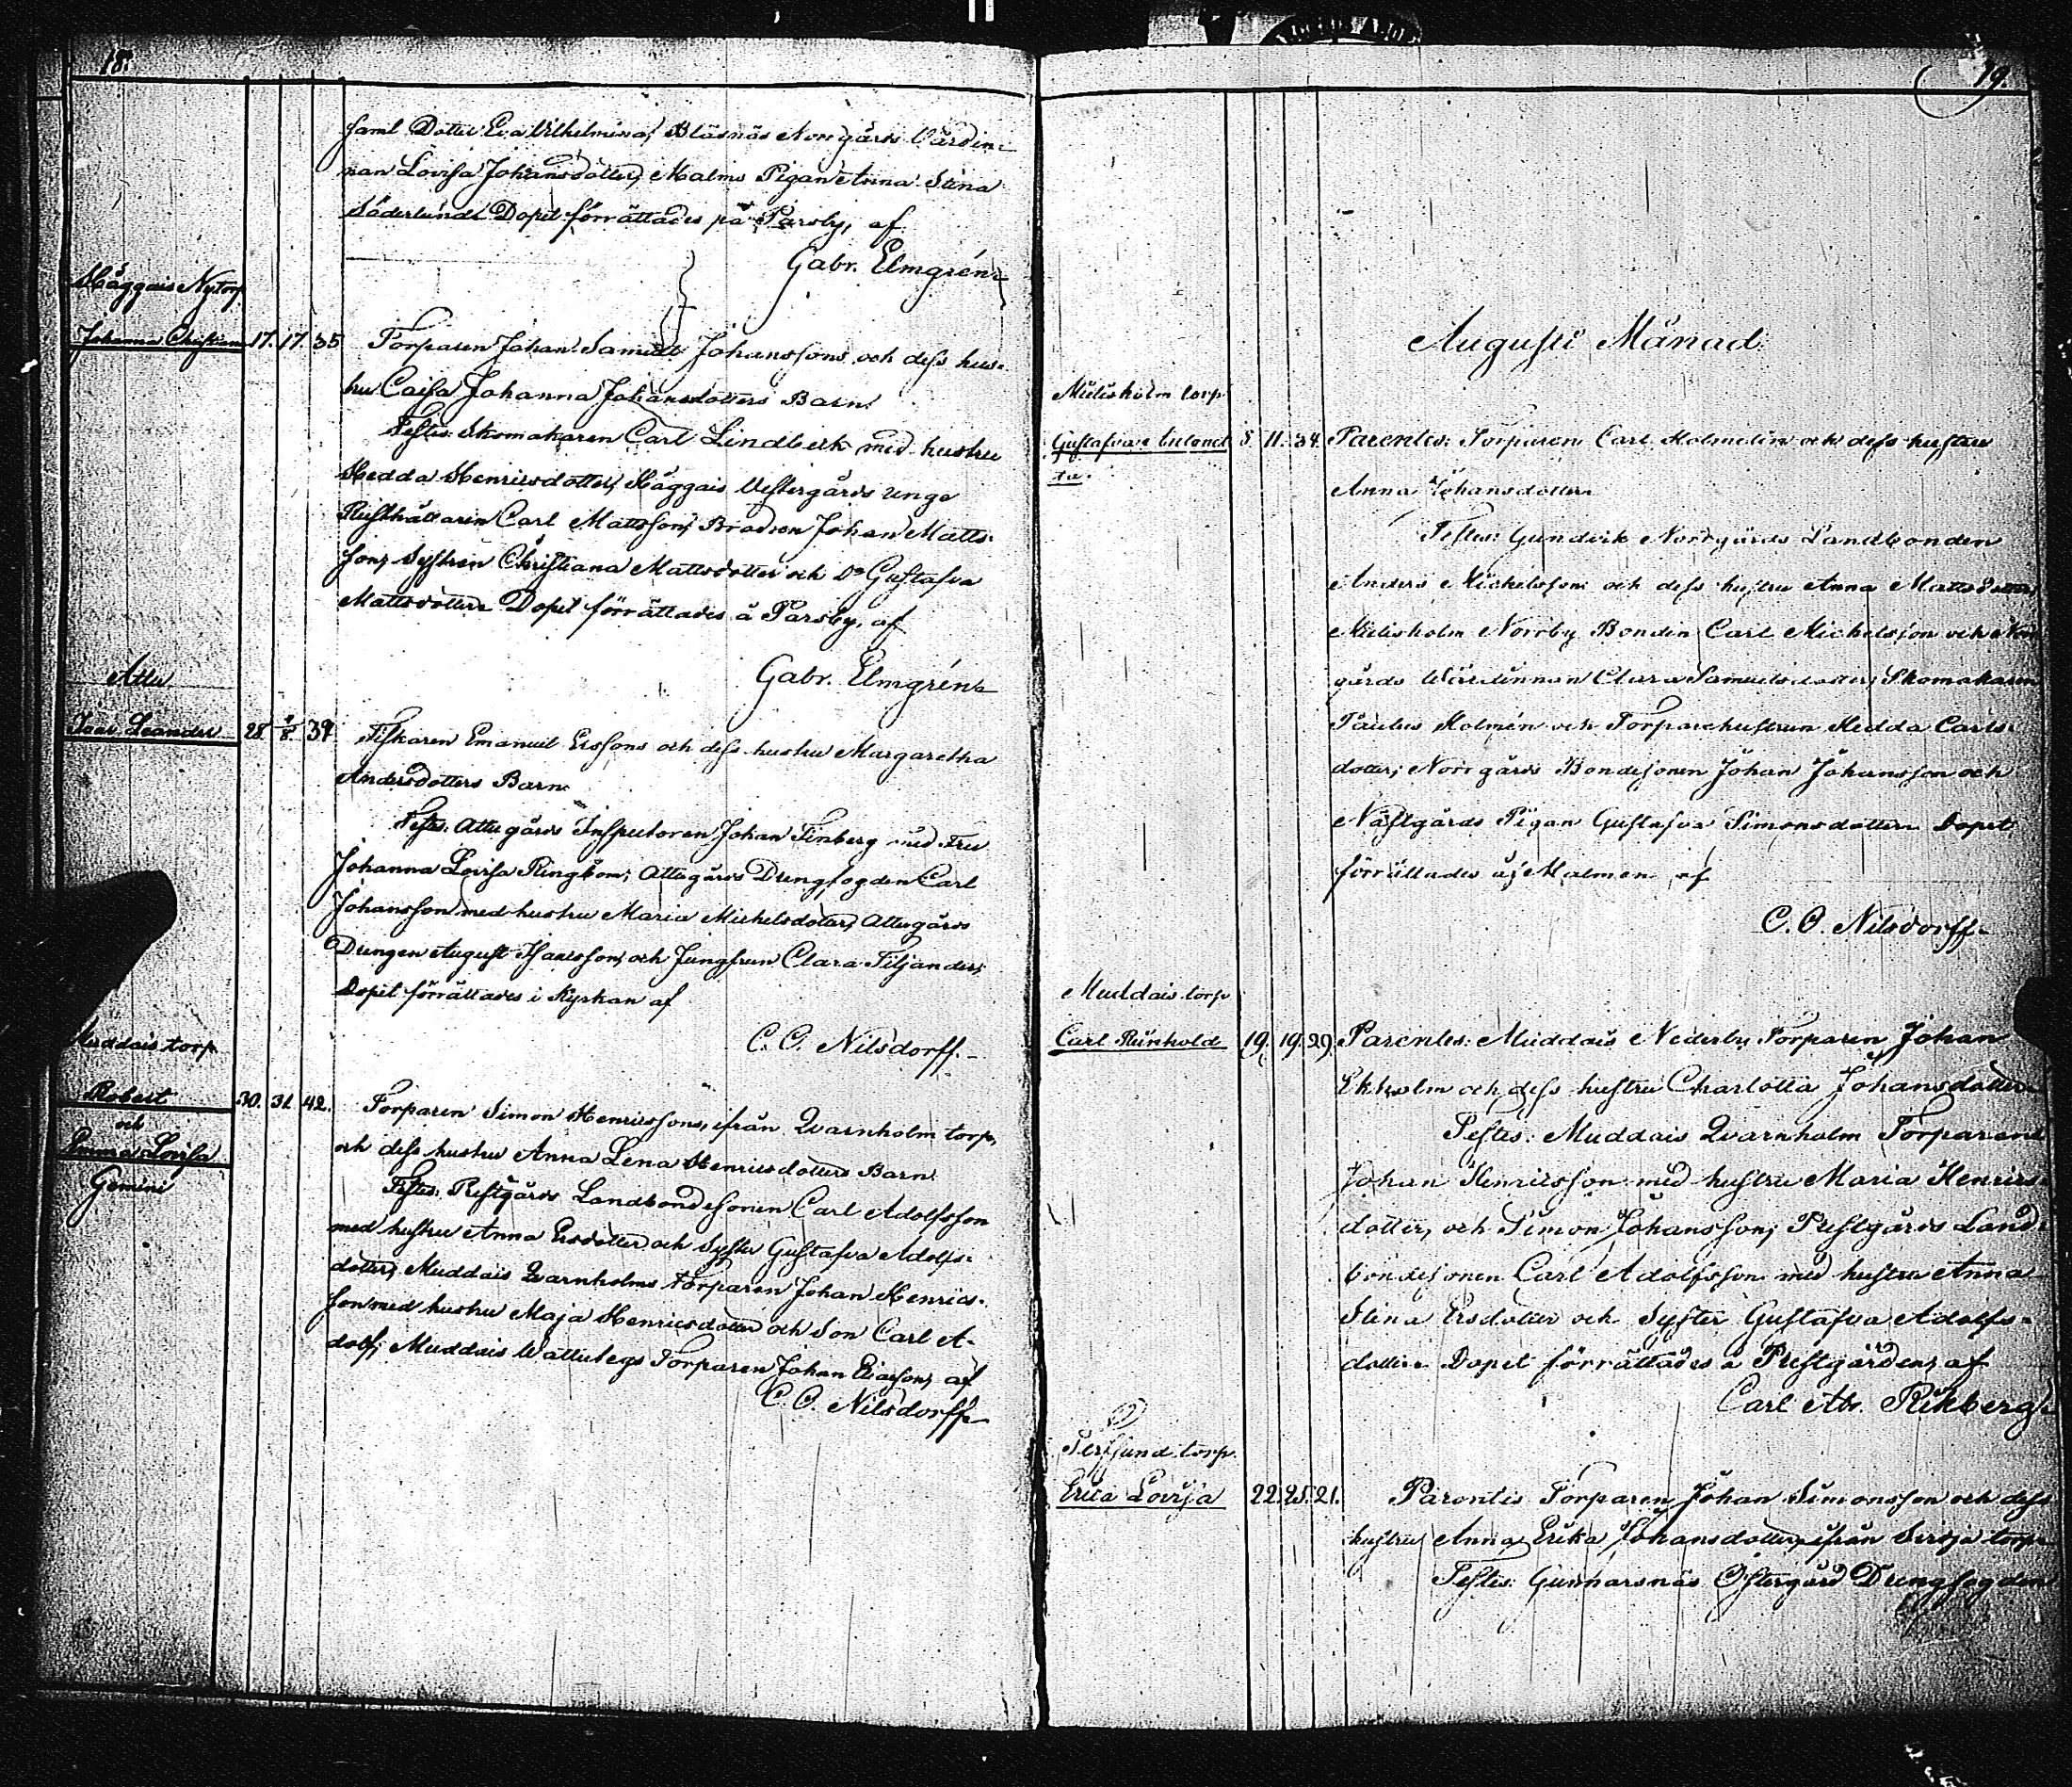 18.
saml Dotter Eva Vilhelmina, Bläsnäs Norrgårds Värdin-
nan Lovisa Johansdotter, Malms Pigan Anna Stina
Söderlund. Dopet förrättades på Parsby, af
Gabr. Elmgrén.
Häggais Nytorp
Johanna Christiana 17. 17 35 Torparen Johan Samuel Johanssons och dess hus-
tru Caisa Johanna Johansdotters Barn.
Testes: Skomakaren Carl Lindberk med hustru
Hedda Henricsdotter, Häggais Vestergårds unge
Rusthållaren Carl Mattsson, Brodren Johan Matts-
son, Systren Christiana Mattsdotter och Do Gustafva
Mattsdotter. Dopet förrättades å Parsby, af
Gabr. Elmgrén.
Attu
Ivar Leander 28 1/8 39 Fiskaren Emanuel Erssons och dess hustru Margaretha
Andersdotters Barn.
Testes: Attu gårds Inspectoren Johan Finberg med Fru
Johanna Lovisa Ringbom; Attugårds Drengfogden Carl
Johansson med hustru Maria Michelsdotter, Attugårds
Drengen August Isaksson, och Jungfrun Clara Siljander,
Dopet förrättades i Kyrkan af
C. O. Nilsdorff.
Muddais torp
Robert 30. 31 42. Torparen Simon Henricssons, ifrån Qvarnholm torp,
och
och dess hustru Anna Lena Henricsdotters Barn.
Emma Lovisa
Gemini
Testes: Prestgårds Landbondesonen Carl Adolfsson
med hustru Anna Ersdotter och Syster Gustafva Adolfs-
dotter, Muddais Qvarnholms torparen Johan Henrics-
son med hustru Maja Henricsdotter och Son Carl A-
dolf; Muddais Torparen Johan af
C. O. Nilsdorff.
19.
Augusti Månad.
Mielisholm torp
Gustafva 5 11. 34. Parentes: Torparen Carl Holmelin och dess hustru
ta.
Anna Johansdotter.
Testes: Gundvik Norrgårds Landbonden
Anders Michelsson och dess hustru Anna Mattsdotter,
Mielisholm Norrby Bonden Carl Michelsson och Norr
gårds Värdinnan Clara Samuelsdotter, Skomakaren
Paulus Holmén och Torparehustrun Hedda Carls-
dotter; Norrgårds Bondesonen Johan Johansson och
Nästgårds Pigan Gustafva Simonsdotter. Dopet
förrättades å Malmen af
C. O. Nilsdorff.
Muddais torp
Carl Reinhold 19. 19. 29. Parentes: Muddais Nederby Torparen Johan
Ekholm och dess hustru Charlotta Johansdotter.
Testes: Muddais Qvarnholm Torparene
Johan Henricsson med hustru Maria Henrics-
dotter, och Simon Johansson; Prestgårds Land-
bondesonen Carl Adolfsson med hustru Anna
Stina Ersdotter och Syster Gustafva Adolfs-
dotter. Dopet förrättades å Prestgården, af
Carl Ab. Rikberg.
torp.
Erica Lovisa 22. 25. 21. Parentes Torparen Johan Simonsson och dess
hustru Anna Erika Johansdotter, ifrån torp.
Testes: Gunnarsnäs Östergård Drengfogden